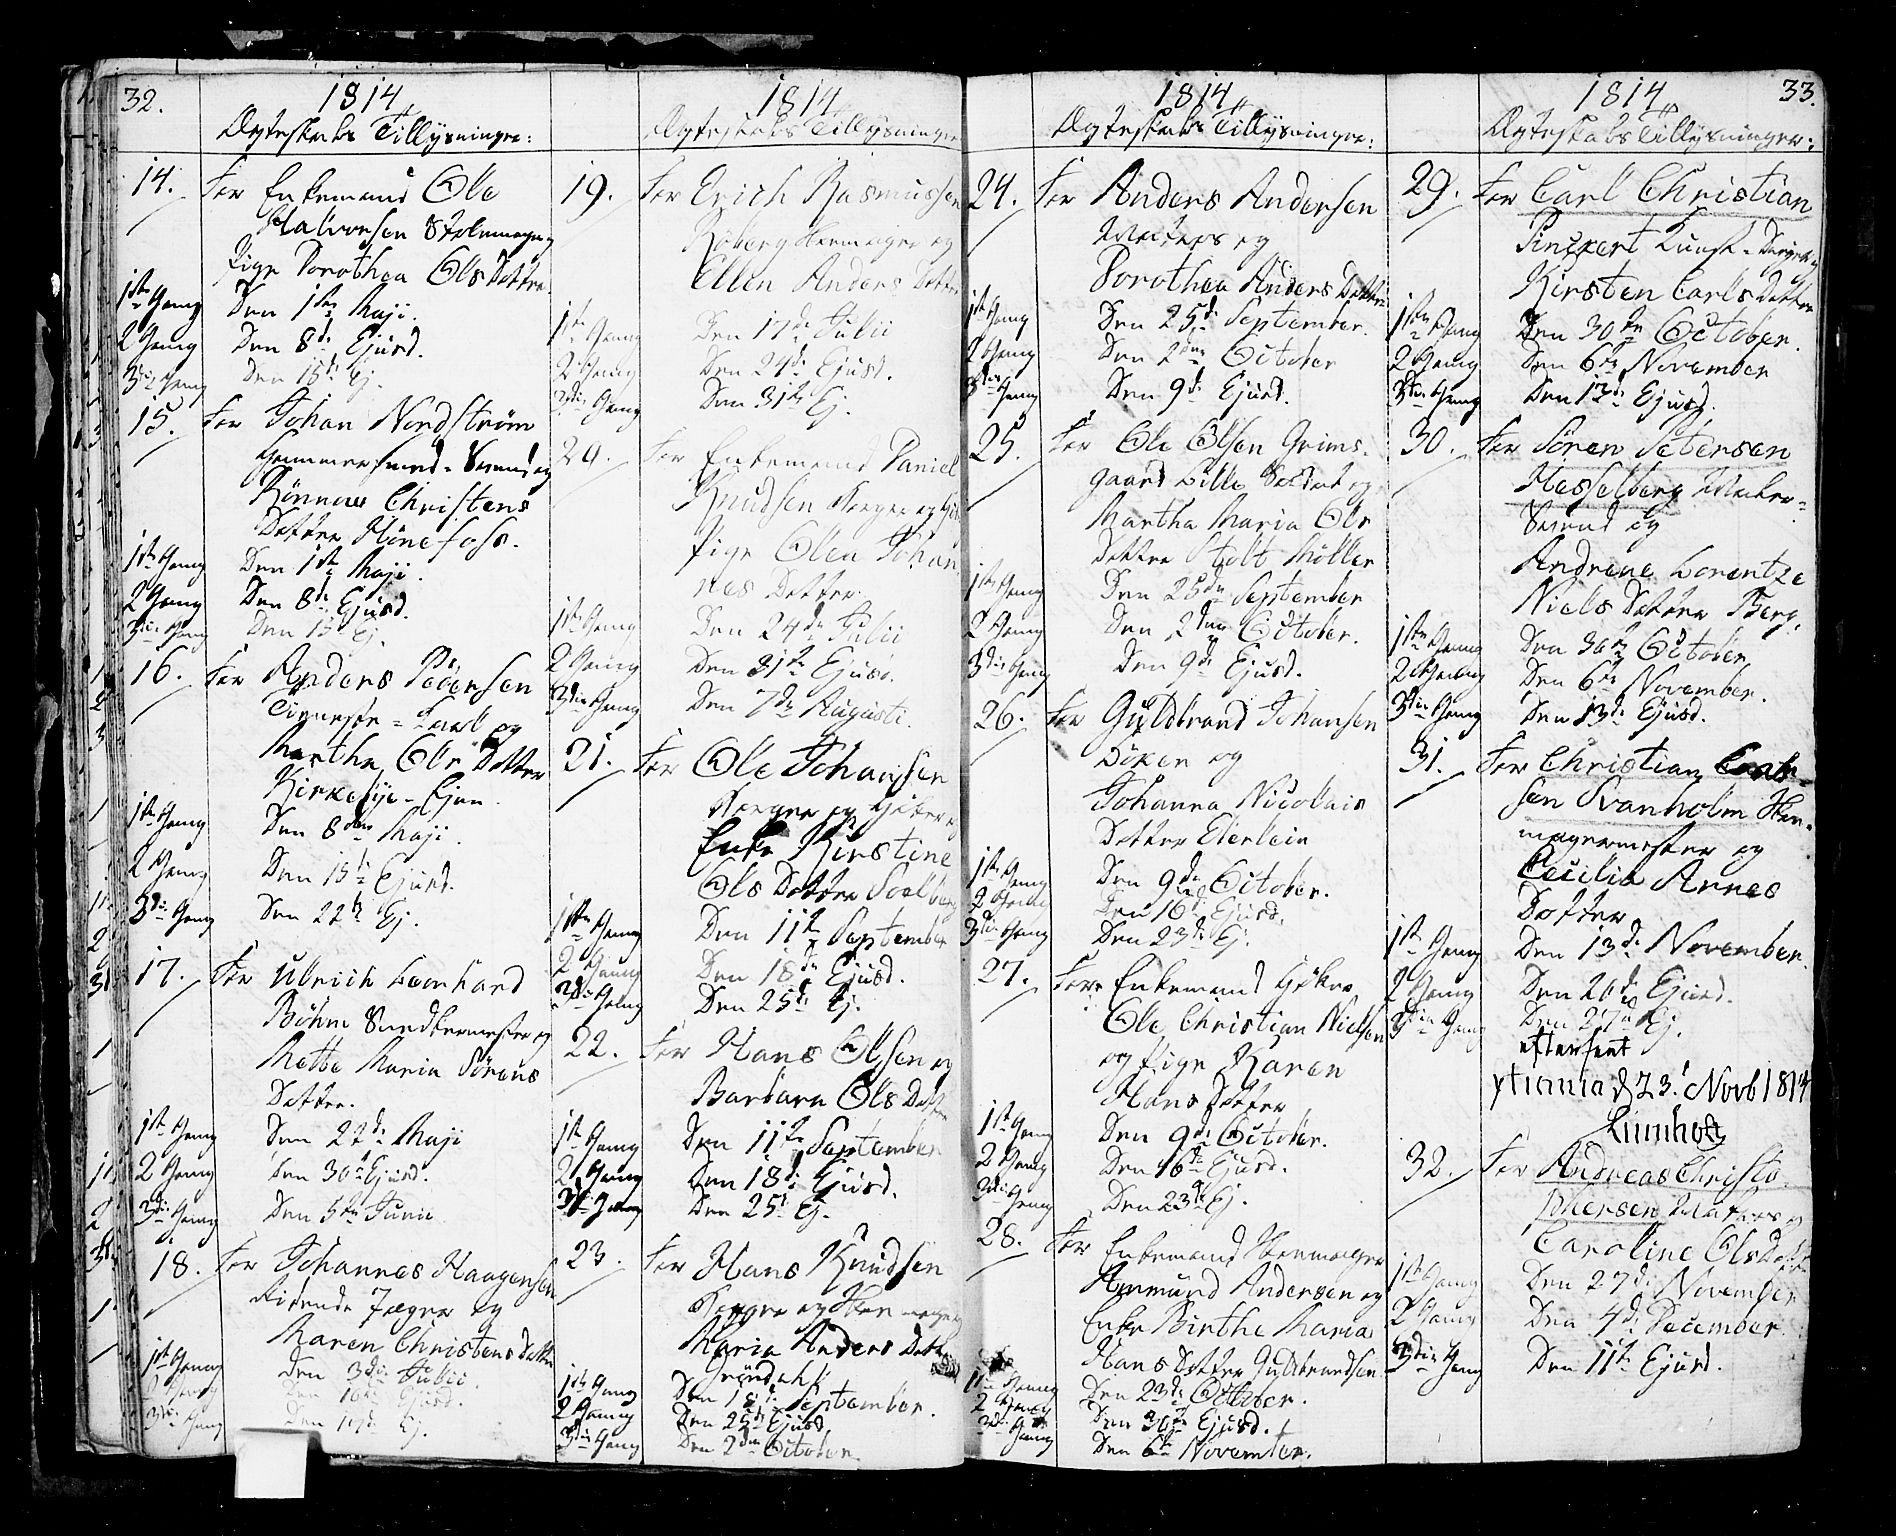 32.
1814
Ægteskabs Tillysninger:
14. For Enkemand Ole
Halvorsen Stolemager og
Pige Dorothea Ols Datter
1ste Gang Den 1ste Maji.
2 Gang Den 8de Ejusd.
3die Gang Den 15de Ej.
15. For Johan Nordstrøm
Hammersmed-Svend og
Rønnau Christens
Datter Hønefoss.
1ste Gang Den 1ste Maji.
2 Gang Den 8de Ejusd.
3die Gang Den 15de Ej.
16. For Anders Pedersen
Tieneste-Karl og
Martha Ols Datter
Kirkebye-Ejen.
1ste Gang Den 8de Maji.
2 Gang Den 15de Ejusd.
3die Gang Den 22de Ej.
17. For Ulrich Leonhard
Böhm og
Mette Maria Sörens
Datter.
1ste Gang Den 22de Maji
2 Gang Den 30te Ejusd.
3die Gang Den 5te Junii
18. For Johannes Haagensen
Ridende Jæger og
Maren Christens Datter
1ste Gang Den 3die Julii.
2 Gang Den 10de Ejusd.
3die Gang Den Ej.
1814
Ægteskabs Tillysninger
19. For Erich Rasmussen
Skomager og
Ellen Anders Datter
1ste Gang Den 17de Julii
2 Gang Den 24de Ejusd.
3die Gang Den 31te Ej.
20. For Enkemand Daniel
Knudsen Borger og
Pige Olea Johan
nes Datter.
1ste Gang Den 24de Julii
2 Gang Den 31te Ejusd.
3die Gang Den 7de Augusti.
21. For Ole Johansen
Borger og Høker og
Enke Kirstine
Ols Datter Soelberg
1ste Gang Den 11te September
2 Gang Den 18de Ejusd.
3die Gang Den 25de Ej.
22. For Hans Olsen og
Barbara Ols Datter
1ste Gang Den 11te September
2 Gang Den 18de Ejusd.
3die Gang Den 25de Ej.
23. For Hans Knudsen
Borger og Skomager
Maria Anders Datter
1ste Gang Den 18de September.
2 Gang Den 25de Ejusd.
3die Gang Den 2den October.
1814
Ægteskabs Tillysninger:
24. For Anders Andersen
Matros og
Dorothea Anders Datter
1ste Gang Den 25de September.
2 Gang Den 2den October
3die Gang Den 9de Ejusd.
25. For Ole Olsen Grims-
gaard Lille Soldat og
Martha Maria Ols
Datter Holt Møller
1ste Gang Den 25de September
2 Gang Den 2den October.
3die Gang Den 9de Ejusd.
26. For Guldbrand Johansen
og
Johanna Nicolais
Datter Elerlein
1ste Gang Den 9de October.
2 Gang Den 16de Ejusd.
3die Gang Den 23de Ej.
27. For Enkemand Høker
Ole Christian Nielsen
og Pige Karen
Hans Datter
1ste Gang Den 9de October.
2 Gang Den 16de Ejusd.
3die Gang Den 23de Ej.
28. For Enkemand Skomager
Amund Andersen og
Enke Birthe Maria
Hans Datter Guldbrandsen
1ste Gang Den 23de October.
2 Gang Den 30te Ejusd.
3die Gang Den 6te November.
33.
1814
Ægteskabs Tillysninger:
29. For Carl Christian
Pinckert Kunst-Dreyer og
Kirsten Carls Datter
1ste Gang Den 30te October.
2 Gang Den 6te November
3die Gang Den 13de Ejusd.
30. For Sören Petersen
Hesselberg
Svend og
Andrene Lorentze
Niels Datter Berg.
1ste Gang Den 30te October
2 Gang Den 6te November.
3die Gang Den 13de Ejusd.
31. For Christian Carl-
sen Svanholm Sko-
magermester og
Cecilia Arnes
Datter
1ste Gang Den 13de November.
2 Gang Den 20de Ejusd.
3die Gang Den 27de Ej.
efterseet
d 23. Novb 1814
32. For Andreas Christo
phersen Matros og
Caroline Ols Datter
1ste Gang Den 27de November
2 Gang Den 4de December.
3die Gang Den 11te Ejusd.